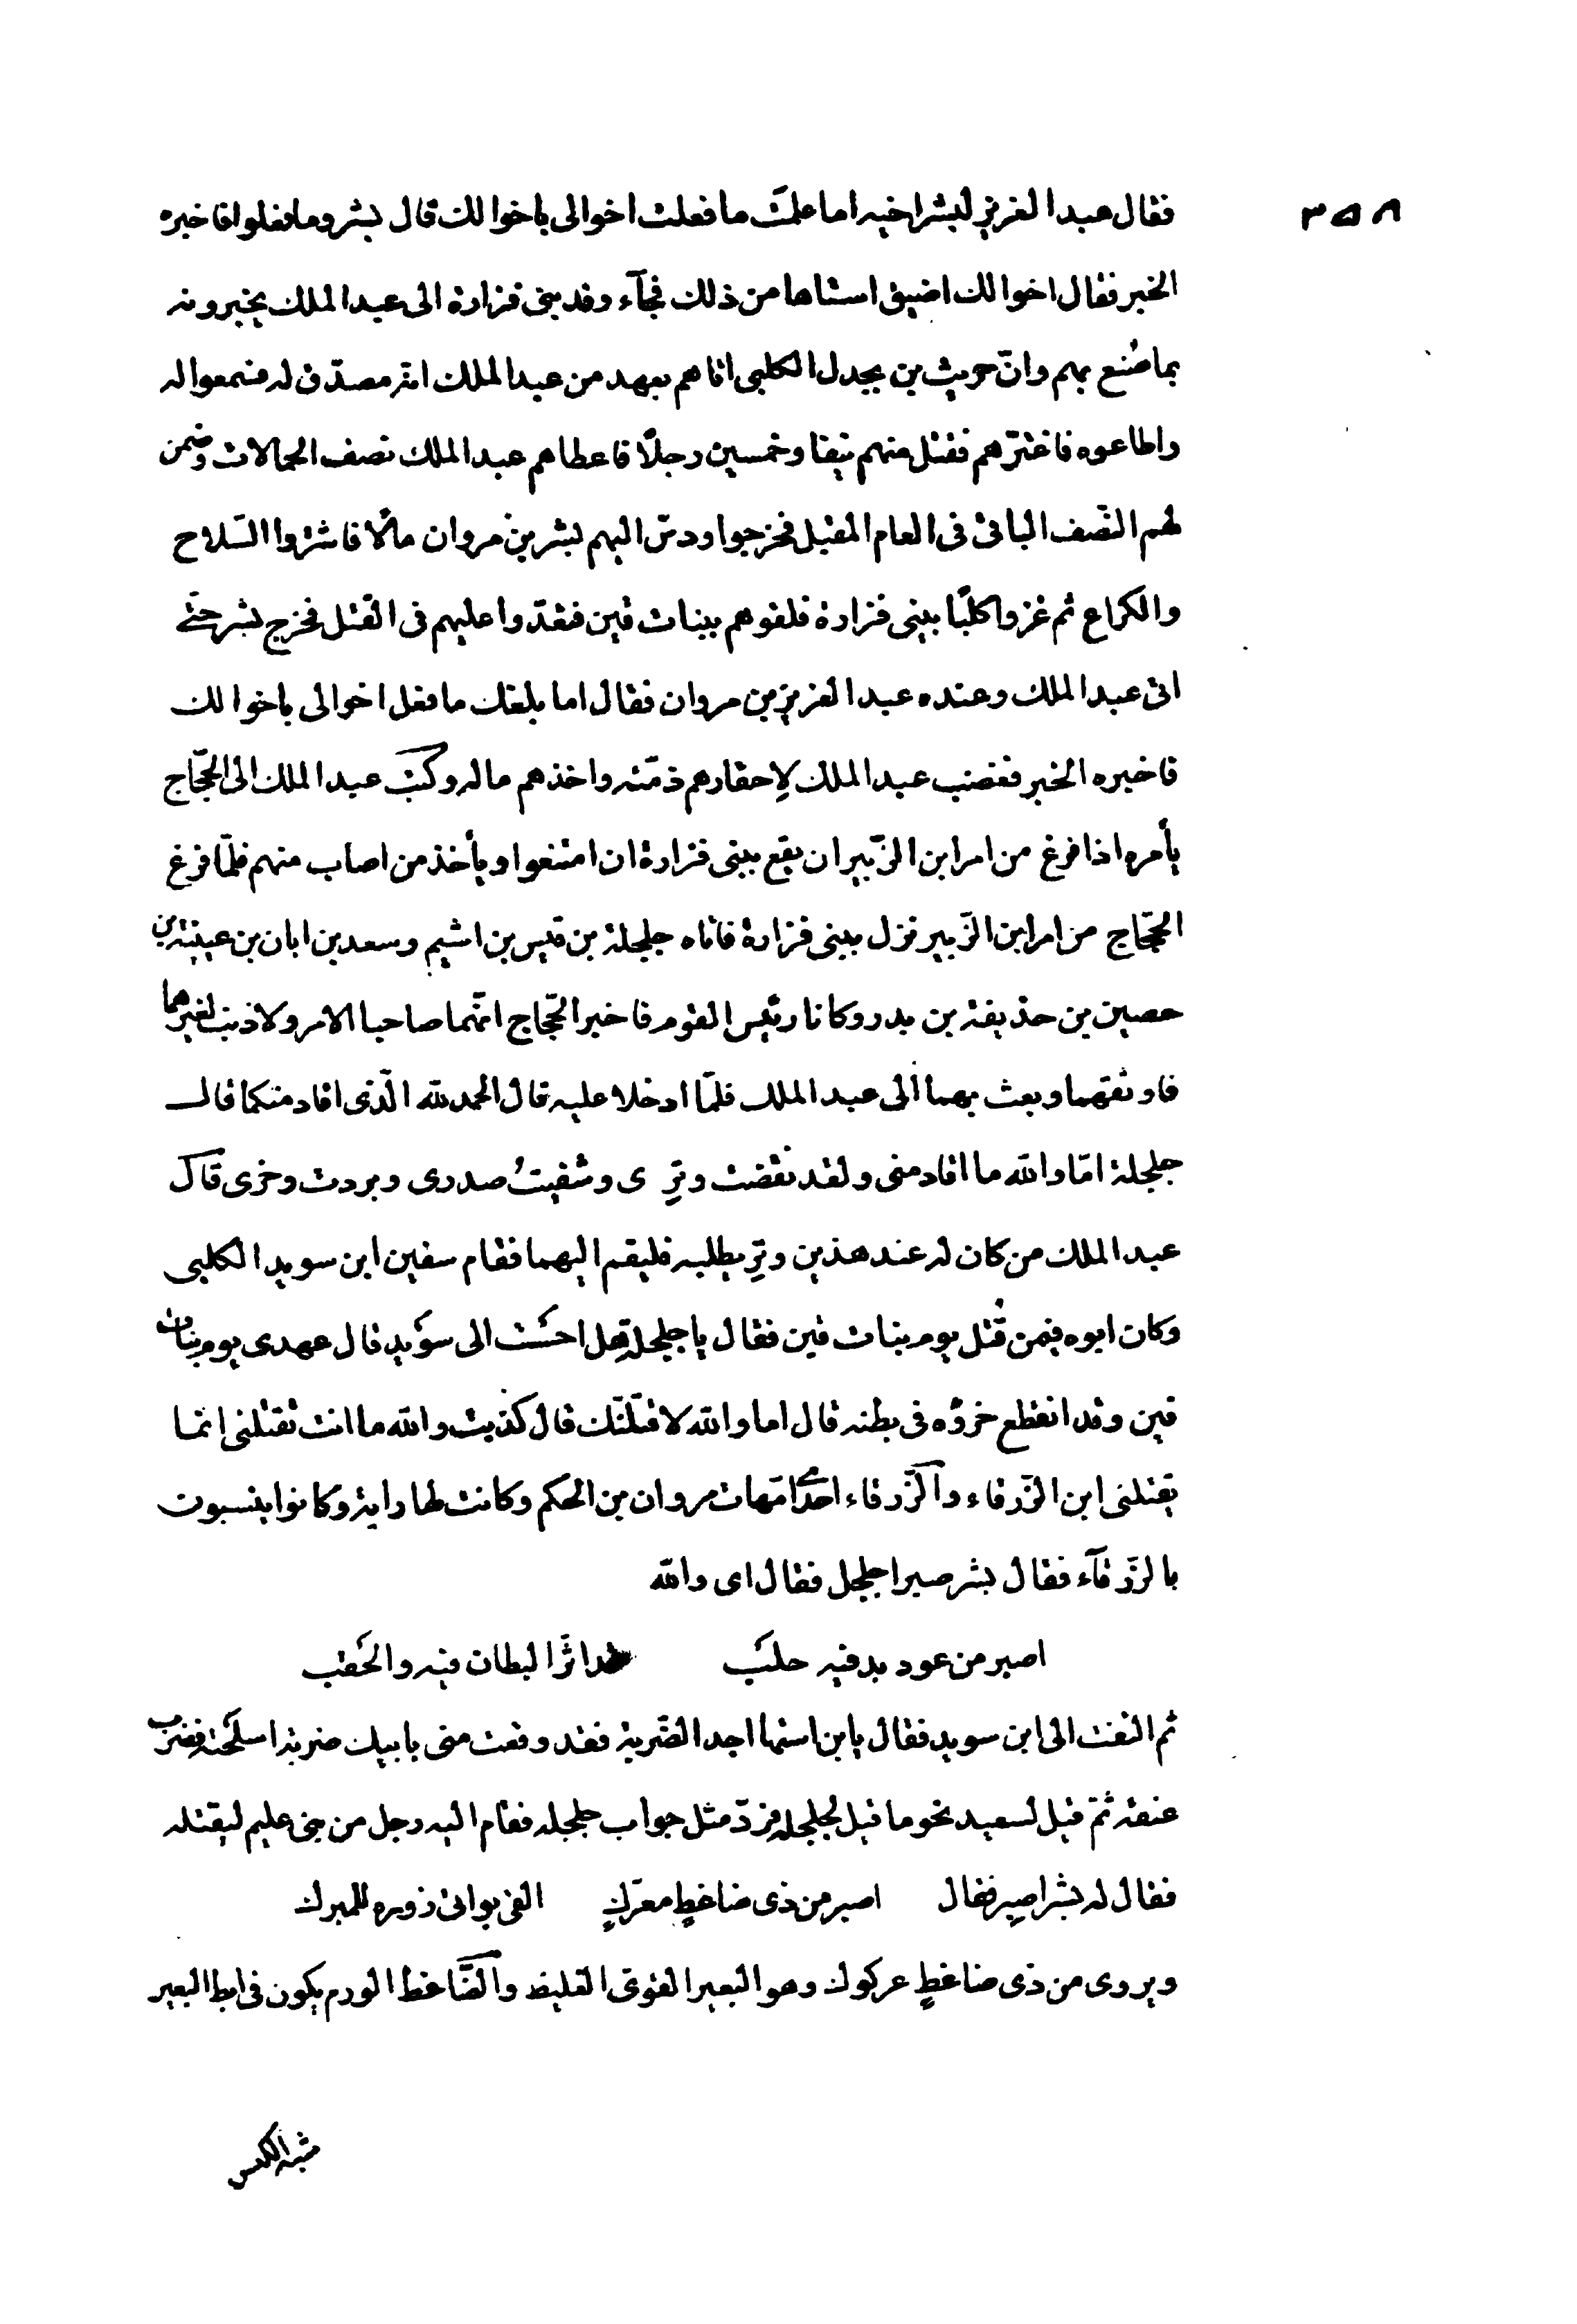 ٣٥٨
فقال عبد العزيز لبشر اخيه اما علمت ما فعلت اخوالى باخوالك قال بشر وما فعلوا فاخبره
الخبر فقال اخوالك اضيق استاها من ذلك فجآء وفد بنى فزارة الى عبد الملك يخبرونه
بما صُنع بهم وانّ حريث بن بجدل الكلبى اتاهم بعهد من عبد الملك انّه مصدّق له فسمعوا له
واطاعوه فاغترّهم فقتل منهم نيفا وخمسين رجلًا فاعطاهم عبد الملك نصف الحمالات وضمن
لهم النّصف الباقى فى العام المقبل فخرجوا ودسّ اليهم بشر بن مروان مالًا فاشتروا السّلاح
والكراع ثم غزوا كلبًا ببنى فزارة فلقوهم ببنات قين فتعدّوا عليهم فى القتل فخرج بشر حتّى
اتى عبد الملك وعنده عبد العزيز بن مروان فقال اما بلغك ما فعل اخوالى باخوالك
فاخبره الخبر فغضب عبد الملك لإحقارهم ذمّته واخذهم ماله وكتب عبد الملك الى الحجّاج
يأمره اذا فرغ من امر ابن الزّبير ان يقع ببنى فزارة ان امتنعوا ويأخذ من اصاب منهم فلمّا فرغ
الحجّاج من امر ابن الزّبير نزل ببنى فزارة فاتاه حلحلة بن قيس بن اشيم وسعد بن ابان بن عيينة بن
حصين بن حذيفة بن بدر وكانا رئيس القوم فاخبر الحّجاج انّهما صاحبا الامر ولا ذنب لغيرهما
فاوثقهما وبعث بهما الى عبد الملك فلمّا ادخلا عليه قال الحمد لله الّذى اقاد منكما قال
حلحلة امّا والله ما اقاد منى ولقد نقضت وترِى وشفيتُ صدرى وبردت وحرى قال
عبد الملك من كان له عند هذين وترِ يطلبه فليقم اليهما فقام سفين ابن سويد الكلبى
وكان ابوه فيمن قُتل يوم بنات قين فقال يا حلحلة هل احسَسْت الى سوَيد قال عهدى يوم بنات
قين وقد انقطع خروُه فى بطنه قال اما والله لاقتلنّك قال كذبت والله ما انت تقتلنى إنّما
يقتلنى ابن الزّرقاء والزّرقاء احدى امّهات مروان بن الحكم وكانت لها راية وكانوا ينسبون
بالزّرقآء فقال بشر صبرا حلحل فقال اى والله
اصبر من عود بدفيه حلب قد اثّر البطان فيه والحَقب
ثم التفت الى ابن سويد فقال يابن استها اجد الضّربة فقد وقعت منى بابيك ضربة اسلحَته فضرب
عنقه ثمّ قيل لسعيد نحو ما قيل لحلحلة فردّ مثل جواب حلحلة فقام اليه رجل من بنى عليم ليقتله
فقال له بشر اصبر فقال اصبر من ذى ضاغطٍ معرّكٍ القى بوانى زوره للمبرك
ويروى من ذى ضاغطٍ عركوك وهو البعير القوىّ الغليظ والضّاغط الورم يكون فى ابط البعير